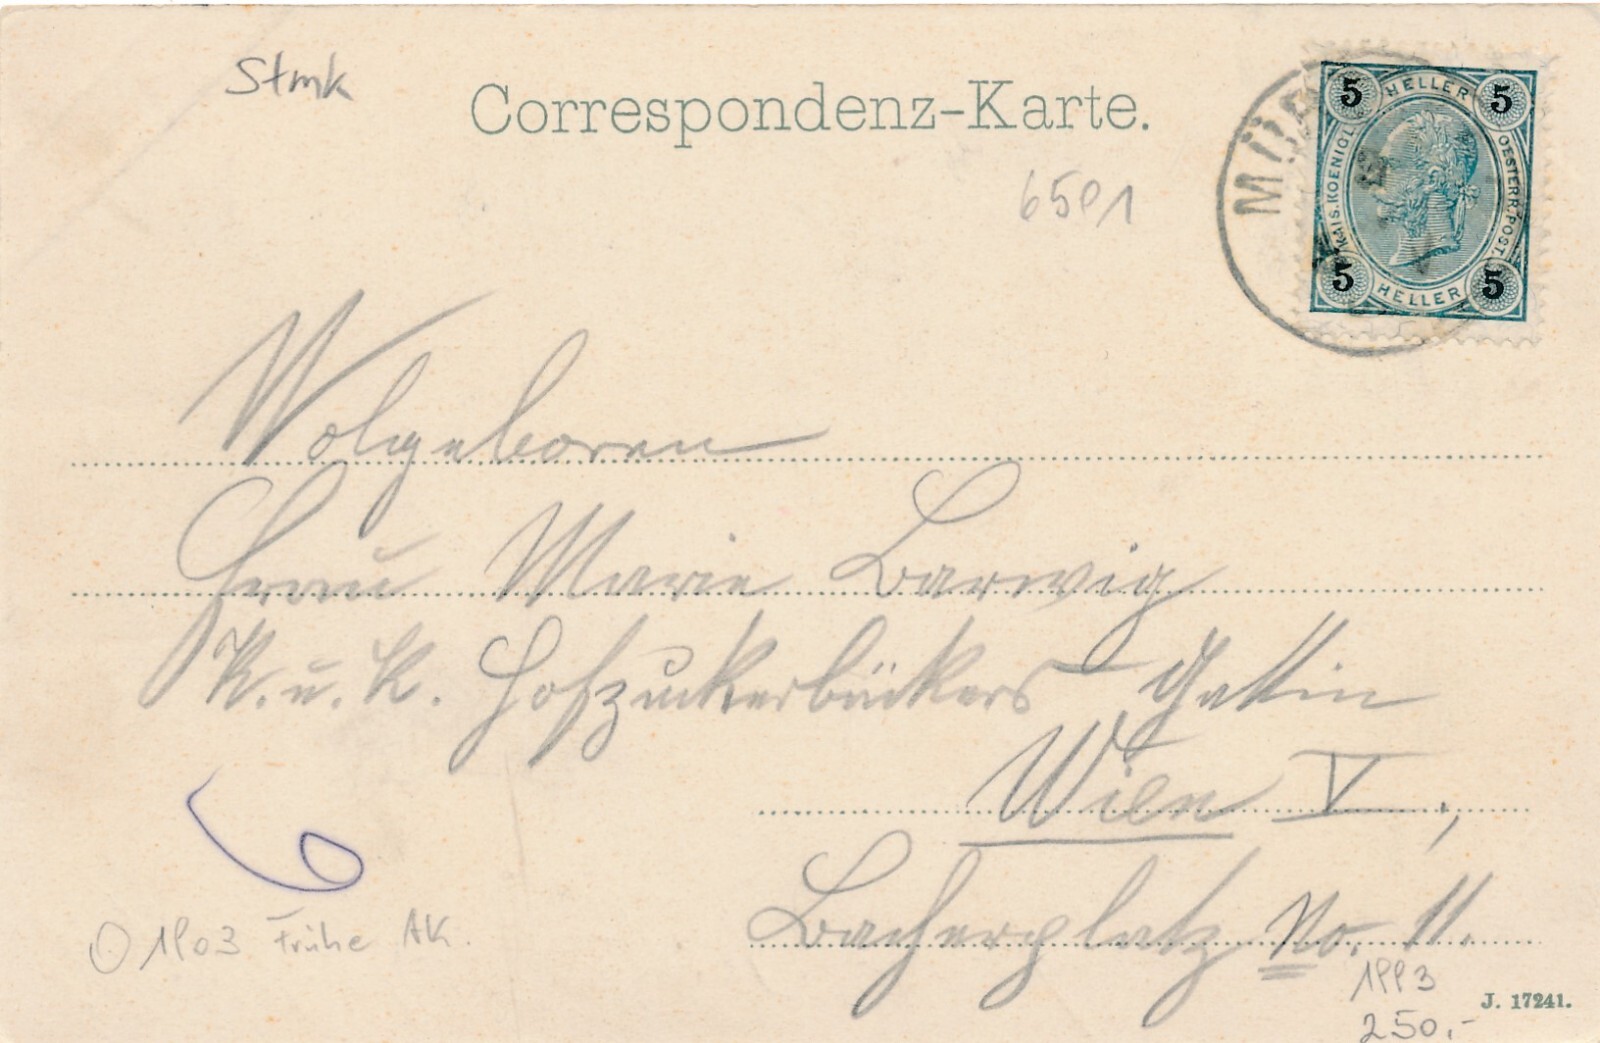 Stmk
Correspondenz-Karte.
5 HELLER 5
KAIS. KOENIGL. OESTERR. POST.
5 HELLER 5
MÜR
6501
Wolgeboren
Frau Marie Barwig
K. u. K. Hofzuckerbäckers Gattin
Wien V,
Bacherplatz No. 11.
6
1903 Frühe AK.
1993
250,-
J. 17241.